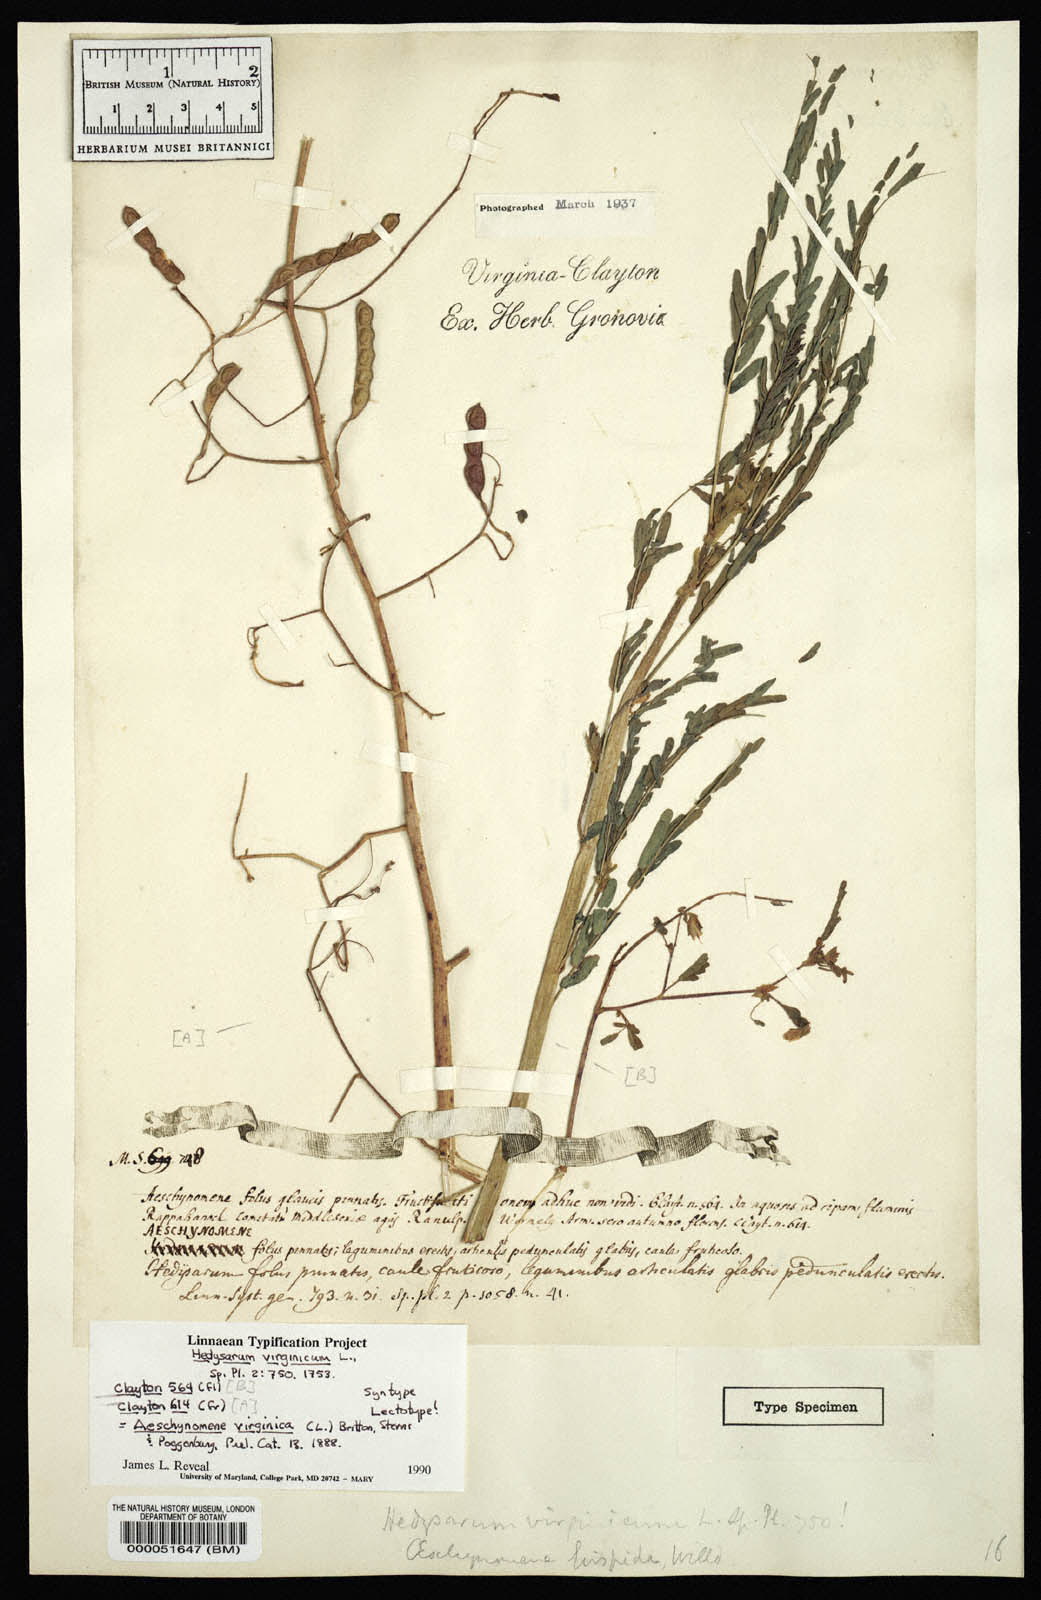 1 2
BRITISH MUSEUM (NATURAL HISTORY)
1 2 3 4 5
HERBARIUM MUSEI BRITANNICI
Photographed March 1937
Virginia-Clayton
Ex. Herb. Gronovii
[A]
[B]
M.S. 698
Aeschynomene foliis glaucis pinnatis. Fructificationem adhuc non vidi. Clayt. n. 564. In aquosis ad ripam fluminis
Rappahannock Comitatu Middlesexiae agis Ranulp. Wormely Arm. sero autumno flores. Clayt. n. 614.
AESCHYNOMENE
foliis pinnatis; leguminibus erectis, articulis pedunculatis glabris, caule fruticoso.
Hedisarum foliis pinnatis, caule fruticoso, leguminibus articulatis glabris pedunculatis erectis.
Linn. Syst. gen. 793. n. 31. Sp. pl. 2. p. 1058. n. 41.
Linnaean Typification Project
Hedysarum virginicum L.,
Sp. Pl. 2: 750. 1753.
Clayton 564 (fl) [B] Syntype
Clayton 614 (fr) [A] Lectotype!
= Aeschynomene virginica (L.) Britton, Sterns
& Poggenburg, Prel. Cat. 13. 1888.
James L. Reveal 1990
University of Maryland, College Park, MD 20742 – MARY
Type Specimen
THE NATURAL HISTORY MUSEUM, LONDON
DEPARTMENT OF BOTANY
000051647 (BM)
Hedysarum virginicum L. Sp. Pl. 750!
Æschynomene hispida, Willd.
16